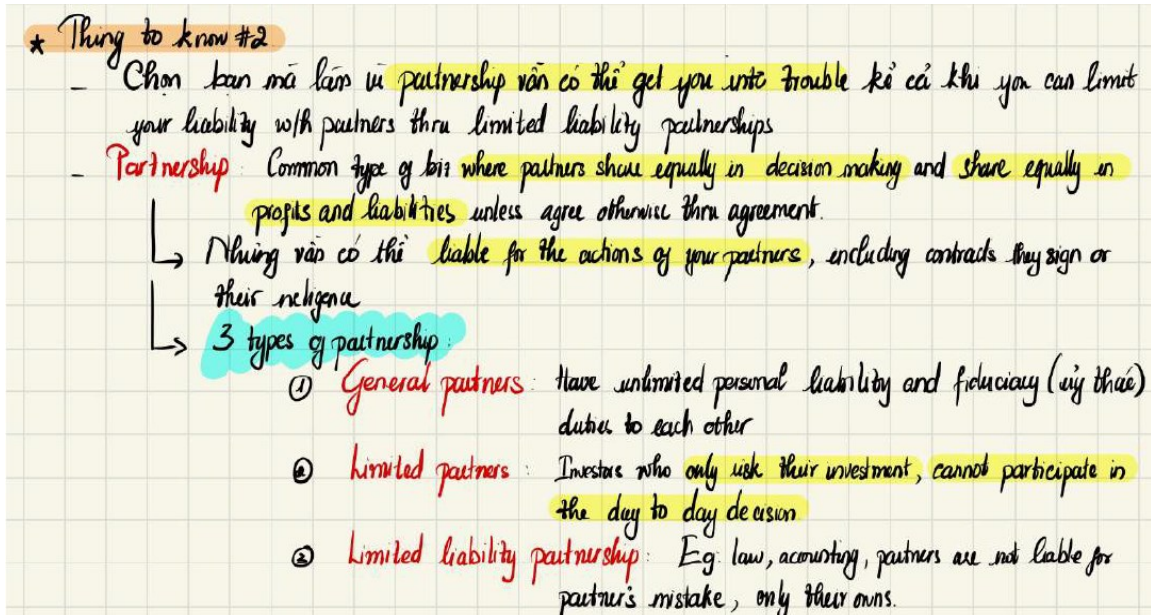 * Thing to know #2
- Chọn bạn mà làm vì partnership vẫn có thể get you into trouble kể cả khi you can limit
your liability w/h partners thru limited liability partnerships
- Partnership: Common type of biz where partners share equally in decision making and share equally in
profits and liabilities unless agree otherwise thru agreement.
↳ Nhưng vẫn có thể liable for the actions of your partners, including contracts they sign or
their neligence
↳ 3 types of partnership:
① General partners: Have unlimited personal liability and fiduciary (uỷ thác)
duties to each other
② Limited partners: Investors who only risk their investment, cannot participate in
the day to day decision
③ Limited liability partnership: Eg. law, accounting, partners are not liable for
partner's mistake, only their owns.